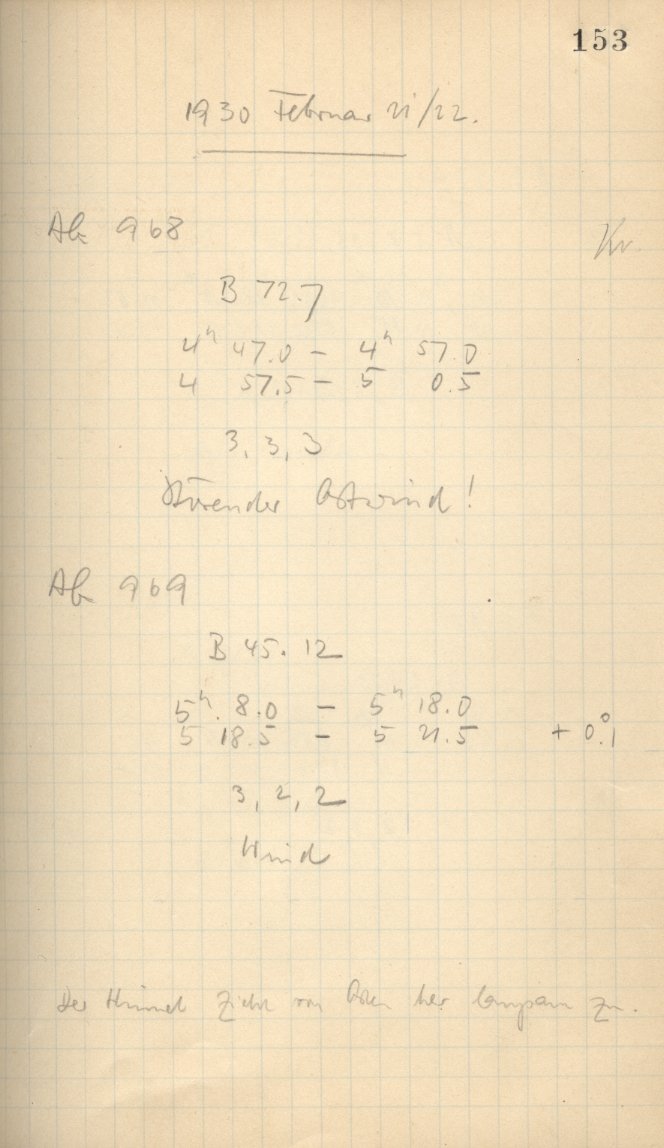 153
1930 Februar 21/22.
Ab 968
Kr.
B 72.7
4ʰ 47.0 – 4ʰ 57.0
4 57.5 – 5 0.5
3, 3, 3
Störender Ostwind!
Ab 969
B 45.12
5ʰ 8.0 – 5ʰ 18.0
5 18.5 – 5 21.5 + 0.°1
3, 2, 2
Wind
Der Himmel zieht von Osten her langsam zu.